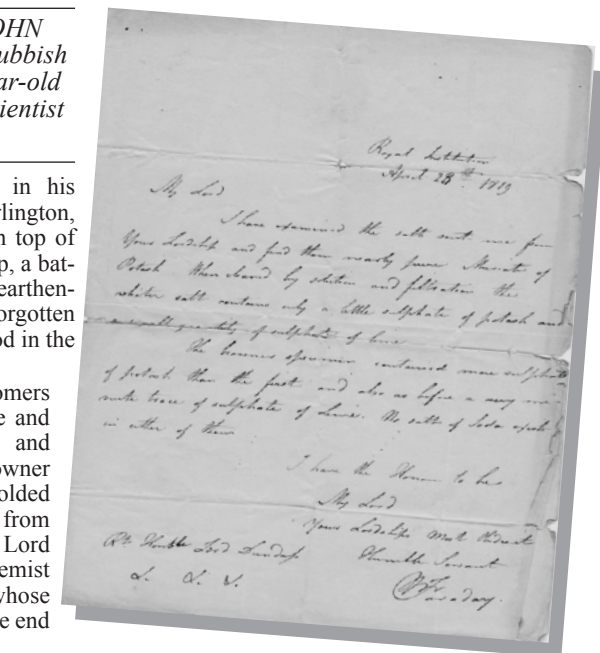 OHN
ubbish
ar-old
ientist
in his
rlington,
n top of
p, a bat-
earthen-
orgotten
od in the
omers
e and
and
owner
olded
from
Lord
emist
whose
e end
Royal Institution
April 28th 1819
My Lord
I have examined the salts sent me from
Your Lordship and find them nearly pure Muriate of
Potash When cleared by solution and filtration the
whiter salt contains only a little sulphate of potash and
a small quantity of sulphate of lime
The browner specimen contained more sulphate
of potash than the first and also as before a very mi-
nute trace of sulphate of Lime. No salt of Soda
in either of them
I have the Honour to be
My Lord
Your Lordships Most Obedient
Humble Servant
M Faraday.
Rt Honble Lord Dundas